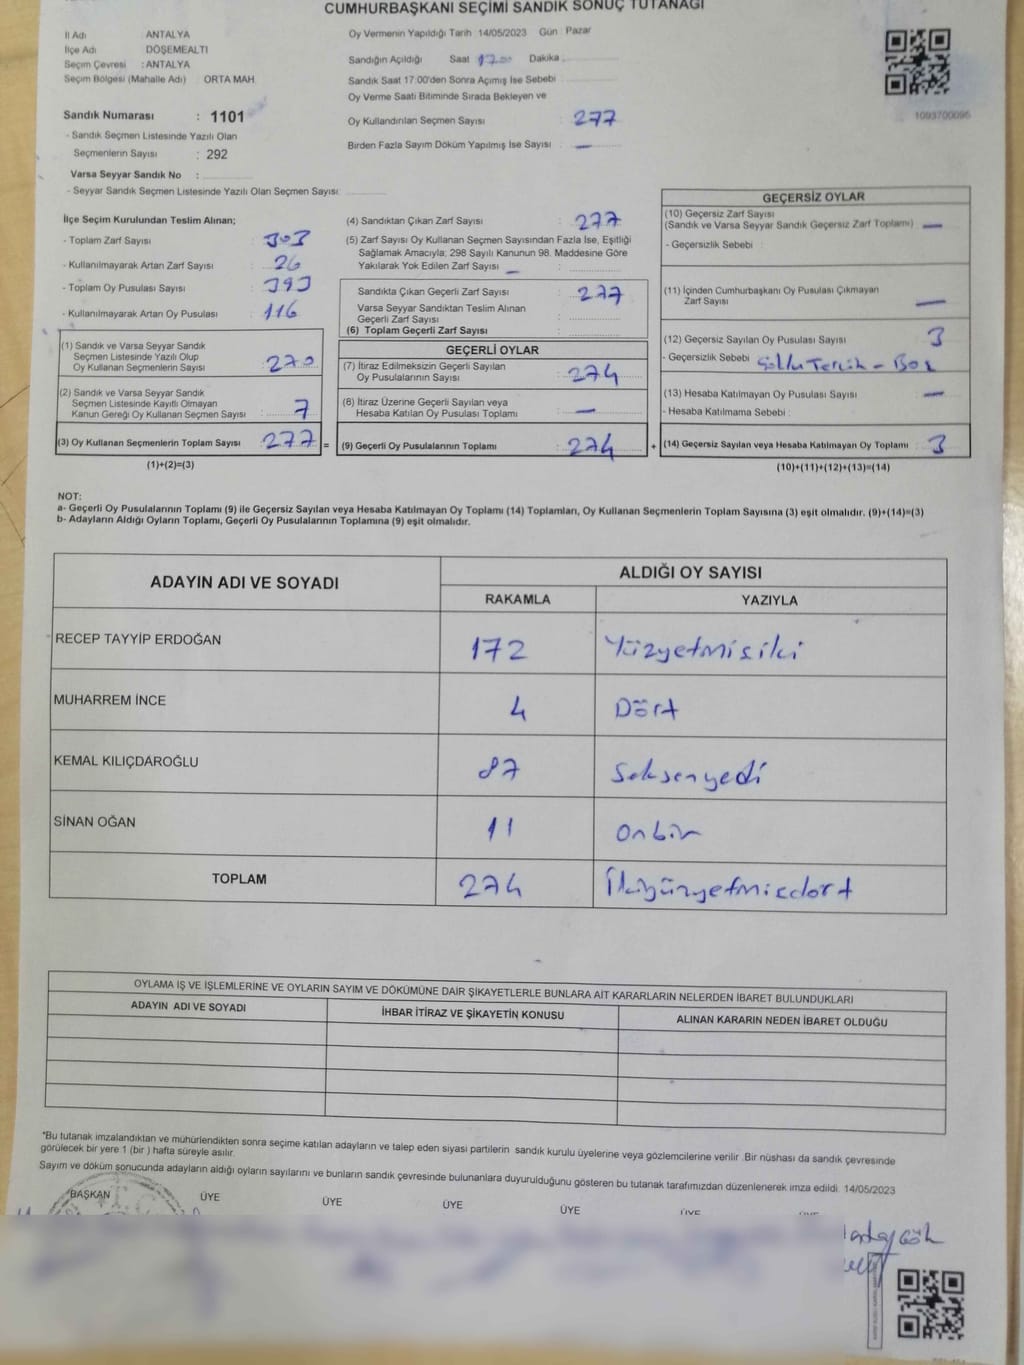 CUMHURBAŞKANI SEÇİMİ SANDIK SONUÇ TUTANAĞI
İl Adı ANTALYA
İlçe Adı DÖŞEMEALTI
Seçim Çevresi : ANTALYA
Seçim Bölgesi (Mahalle Adı) ORTA MAH
Oy Vermenin Yapıldığı Tarih 14/05/2023 Gün : Pazar
Sandığın Açıldığı Saat 17.00 Dakika
Sandık Saat 17:00'den Sonra Açımış İse Sebebi
Oy Verme Saati Bitiminde Sırada Bekleyen ve
Oy Kullandırılan Seçmen Sayısı : 277
Birden Fazla Sayım Döküm Yapılmış İse Sayısı : —
1093700096
Sandık Numarası : 1101
- Sandık Seçmen Listesinde Yazılı Olan
Seçmenlerin Sayısı : 292
Varsa Seyyar Sandık No :
- Seyyar Sandık Seçmen Listesinde Yazılı Olan Seçmen Sayısı:
İlçe Seçim Kurulundan Teslim Alınan;
- Toplam Zarf Sayısı : 303
- Kullanılmayarak Artan Zarf Sayısı : 26
- Toplam Oy Pusulası Sayısı : 393
- Kullanılmayarak Artan Oy Pusulası : 116
(1) Sandık ve Varsa Seyyar Sandık
Seçmen Listesinde Yazılı Olup
Oy Kullanan Seçmenlerin Sayısı : 270
(2) Sandık ve Varsa Seyyar Sandık
Seçmen Listesinde Kayıtlı Olmayan
Kanun Gereği Oy Kullanan Seçmen Sayısı : 7
(3) Oy Kullanan Seçmenlerin Toplam Sayısı : 277 =
(1)+(2)=(3)
(4) Sandıktan Çıkan Zarf Sayısı : 277
(5) Zarf Sayısı Oy Kullanan Seçmen Sayısından Fazla İse, Eşitliği
Sağlamak Amacıyla; 298 Sayılı Kanunun 98. Maddesine Göre
Yakılarak Yok Edilen Zarf Sayısı — :
Sandıkta Çıkan Geçerli Zarf Sayısı : 277
Varsa Seyyar Sandıktan Teslim Alınan
Geçerli Zarf Sayısı :
(6) Toplam Geçerli Zarf Sayısı :
GEÇERLİ OYLAR
(7) İtiraz Edilmeksizin Geçerli Sayılan
Oy Pusulalarının Sayısı : 274
(8) İtiraz Üzerine Geçerli Sayılan veya
Hesaba Katılan Oy Pusulası Toplamı : —
(9) Geçerli Oy Pusulalarının Toplamı : 274 +
GEÇERSİZ OYLAR
(10) Geçersiz Zarf Sayısı
(Sandık ve Varsa Seyyar Sandık Geçersiz Zarf Toplamı) —
- Geçersizlik Sebebi :
(11) İçinden Cumhurbaşkanı Oy Pusulası Çıkmayan
Zarf Sayısı : —
(12) Geçersiz Sayılan Oy Pusulası Sayısı : 3
- Geçersizlik Sebebi
(13) Hesaba Katılmayan Oy Pusulası Sayısı : —
- Hesaba Katılmama Sebebi :
(14) Geçersiz Sayılan veya Hesaba Katılmayan Oy Toplamı : 3
(10)+(11)+(12)+(13)=(14)
NOT:
a- Geçerli Oy Pusulalarının Toplamı (9) ile Geçersiz Sayılan veya Hesaba Katılmayan Oy Toplamı (14) Toplamları, Oy Kullanan Seçmenlerin Toplam Sayısına (3) eşit olmalıdır. (9)+(14)=(3)
b- Adayların Aldığı Oyların Toplamı, Geçerli Oy Pusulalarının Toplamına (9) eşit olmalıdır.
ADAYIN ADI VE SOYADI ALDIĞI OY SAYISI
RAKAMLA YAZIYLA
RECEP TAYYİP ERDOĞAN 172 Yüzyetmişiki
MUHARREM İNCE 4 Dört
KEMAL KILIÇDAROĞLU 87 Seksenyedi
SİNAN OĞAN 11 Onbir
TOPLAM 274 İkiyüzyetmişdört
OYLAMA İŞ VE İŞLEMLERİNE VE OYLARIN SAYIM VE DÖKÜMÜNE DAİR ŞİKAYETLERLE BUNLARA AİT KARARLARIN NELERDEN İBARET BULUNDUKLARI
ADAYIN ADI VE SOYADI İHBAR İTİRAZ VE ŞİKAYETİN KONUSU ALINAN KARARIN NEDEN İBARET OLDUĞU
*Bu tutanak imzalandıktan ve mühürlendikten sonra seçime katılan adayların ve talep eden siyasi partilerin sandık kurulu üyelerine veya gözlemcilerine verilir .Bir nüshası da sandık çevresinde
görülecek bir yere 1 (bir ) hafta süreyle asılır.
Sayım ve döküm sonucunda adayların aldığı oyların sayılarını ve bunların sandık çevresinde bulunanlara duyurulduğunu gösteren bu tutanak tarafımızdan düzenlenerek imza edildi. 14/05/2023
BAŞKAN ÜYE ÜYE ÜYE ÜYE ÜYE ÜYE